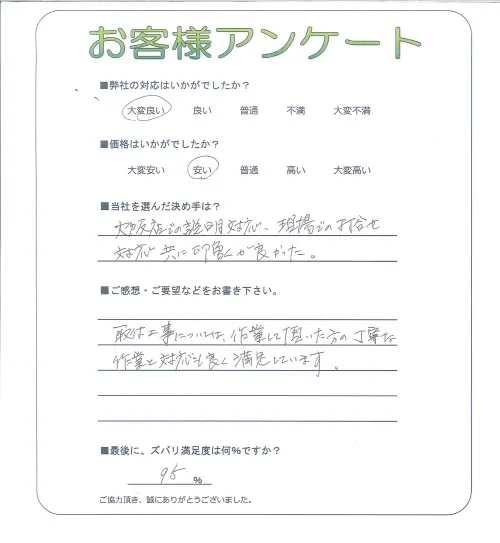 お客様アンケート
■弊社の対応はいかがでしたか？
大変良い 良い 普通 不満 大変不満
■価格はいかがでしたか？
大変安い 安い 普通 高い 大変高い
■当社を選んだ決め手は？
店での説明対応、現場での打合せ
対応 共に印象が良かった。
■ご感想・ご要望などをお書き下さい。
取付工事については、作業して頂いた方の丁寧な
作業と対応も良く満足しています。
■最後に、ズバリ満足度は何%ですか？
95 %
ご協力頂き、誠にありがとうございました。